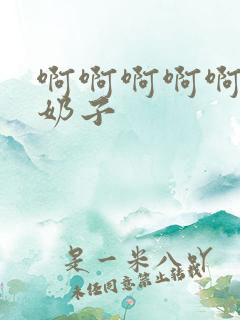 啊啊啊啊啊
奶子
是一米八吖
未经同意禁止转载